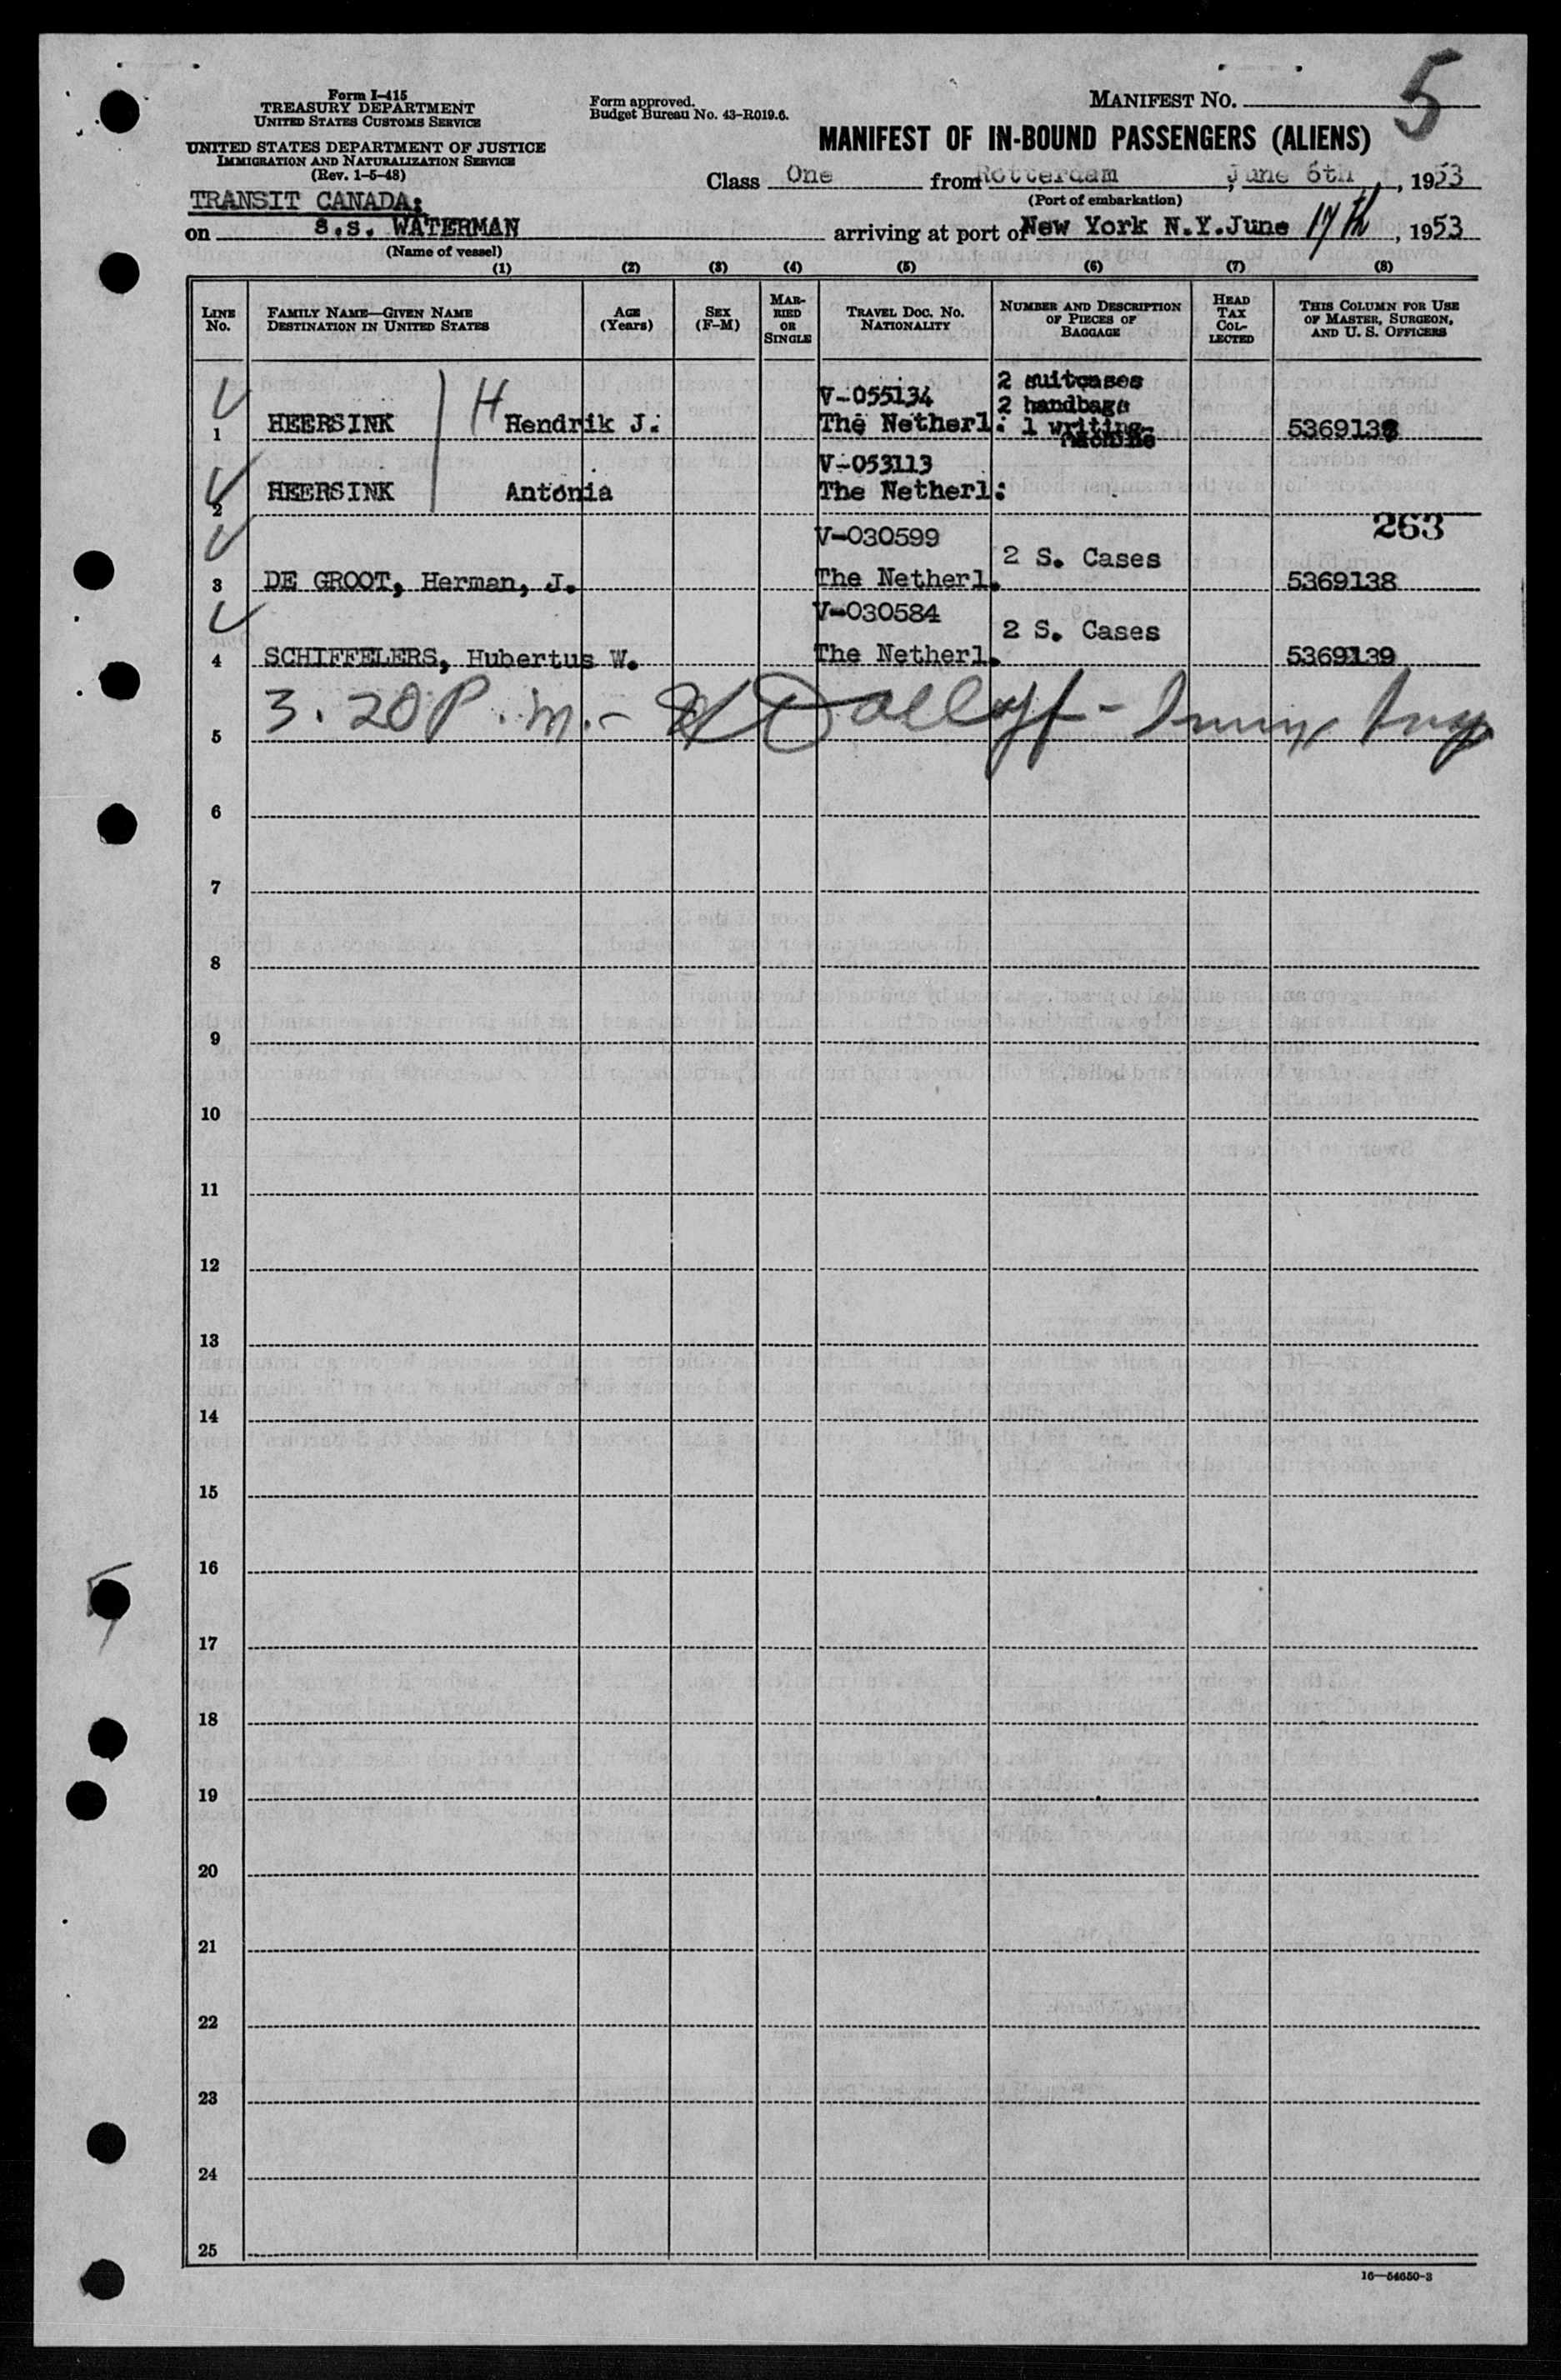 5
Form I-415
TREASURY DEPARTMENT
UNITED STATES CUSTOMS SERVICE
UNITED STATES DEPARTMENT OF JUSTICE
IMMIGRATION AND NATURALIZATION SERVICE
(Rev. 1-5-48)
Form approved.
Budget Bureau No. 43-R019.6.
MANIFEST NO.
MANIFEST OF IN-BOUND PASSENGERS (ALIENS)
Class One from Rotterdam, June 6th, 1953
(Port of embarkation)
TRANSIT CANADA:
on s.s. WATERMAN arriving at port of New York N.Y. June 17th, 1953
(Name of vessel)
(1) (2) (3) (4) (5) (6) (7) (8)
LINE NO. FAMILY NAME—GIVEN NAME DESTINATION IN UNITED STATES AGE (Years) SEX (F-M) MARRIED OR SINGLE TRAVEL DOC. NO. NATIONALITY NUMBER AND DESCRIPTION OF PIECES OF BAGGAGE HEAD TAX COLLECTED THIS COLUMN FOR USE OF MASTER, SURGEON, AND U. S. OFFICERS
V-055134 2 suitcases
2 handbags
1 HEERSINK H Hendrik J. The Netherl: 1 writing machine
V-053113
2 HEERSINK Antonia The Netherl:
263
V-030599 2 S. Cases
3 DE GROOT, Herman, J. The Netherl. 5369138
V-030584 2 S. Cases
4 SCHIFFELERS, Hubertus W. The Netherl. 5369139
5 3.20 P.m.-
6
7
8
9
10
11
12
13
14
15
16
17
18
19
20
21
22
23
24
25
16—54650-3